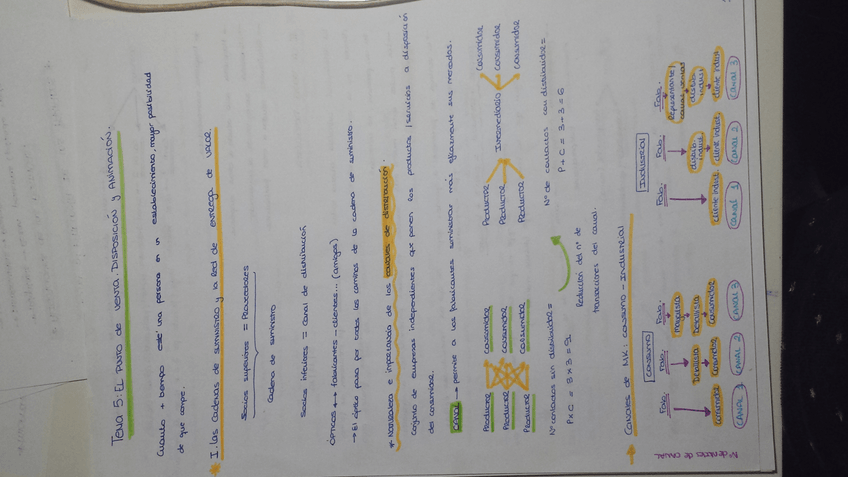 Tema 5: El punto de venta. Disposición y animación.
Cuanto + tiempo esté una persona en un establecimiento, mayor posibilidad
de que compre.
* I. Las cadenas de suministro y la red de entrega de valor
Socios superiores = Proveedores
cadena de suministro
Socios inferiores = canal de distribución
Ópticos ↔ fabricantes - clientes... (amigos)
→ El óptico pasa por todos los caminos de la cadena de suministro.
* Naturaleza e importancia de los canales de distribución.
Conjunto de empresas independientes que ponen los productos / servicios a disposición
del consumidor.
CANAL → permite a los fabricantes suministrar más eficazmente sus mercados.
Productor consumidor
Productor consumidor
Productor consumidor
Productor
Productor
Productor
Intermediario
consumidor
consumidor
consumidor
Nº contactos sin distribuidor =
P x C = 3 x 3 = 9.
Reducción del nº de
transacciones del canal.
Nº de contactos con distribuidor =
P + C = 3 + 3 = 6
→ Canales de MK: consumo - Industrial
Nº de niveles de canal
CONSUMO
Fabr. → consumidor
CANAL 1
Fabr. → Detallista → consumidor
CANAL 2
Fabr. → Mayorista → Detallista → consumidor
CANAL 3
INDUSTRIAL
Fabr. → cliente indust.
CANAL 1
Fabr. → distrib. indust. → cliente indust.
CANAL 2
Fabr. → Representante → distrib. indust. → cliente indust.
CANAL 3